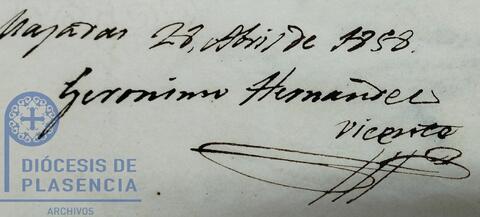 Majadas 28, Abril de 1858.
Geronimo Hernandez
Vicente
DIÓCESIS DE
PLASENCIA
ARCHIVOS